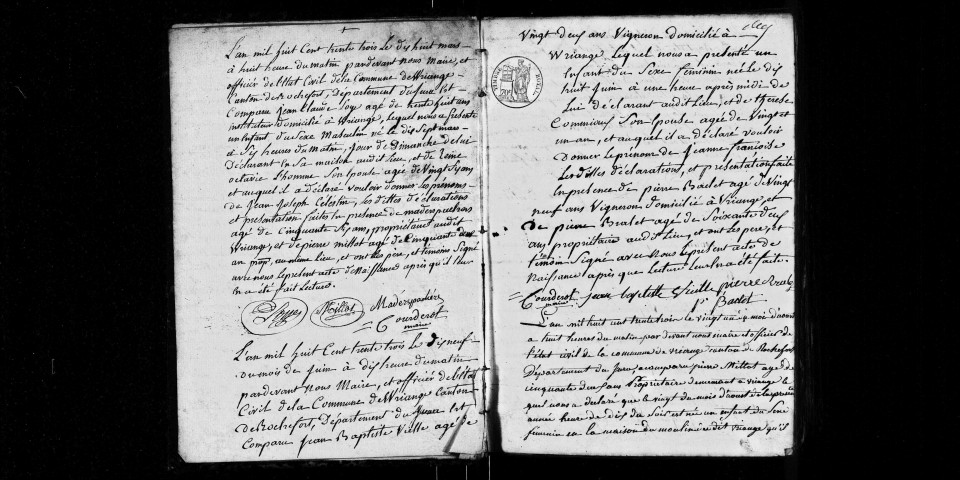 L'an mil huit Cent trente trois le dix huit mars
à huit heure du matin pardevant nous Maire, et
officier de l'Etat Civil de la Commune de Vriange
Canton de Rochefort, Département du Jura Est
Comparu Jean Claude agé de trente huit ans
instituteur domicilié à Vriange, Lequel nous a présenté
un Enfant du Sexe Masculin né le dix Sept mars
à Six heures du matin, Jour de Dimanche de lui
Déclarant En Sa maison audit lieu, et de
octavie Lhomme Son Epouse agée de Vingt Six ans
et auquel il a Déclaré vouloir donner les prénoms
de Jean Joseph Celestin, les dittes déclarations
et présentation faites En présence de
agé de Cinquante Six ans, propriétaire audit
Vriange, et de pierre millot agé de Cinquante deux
an au même lieu, et ont les père, et témoins Signé
avec nous le présent acte de Naissance après qu'il leur
En a été fait Lecture.
Millot
Couderot
maire
L'an mil huit Cent trente trois le dix neuf
du mois de Juin à dix heure du matin
pardevant Nous Maire, et officier de l'Etat
Civil de la Commune de Vriange Canton
de Rochefort, Département du Jura Est
Comparu Jean Baptiste Vielle agé de
Vingt deux ans Vigneron domicilié à
Vriange Lequel nous a présenté un
Enfant du Sexe féminin né le dix
huit Juin à une heure après midi de
Lui déclarant audit Lieu, et de therese
Son Epouse agée de Vingt et
un an, et auquel il a déclaré vouloir
Donner le prénom de Jeanne françoise
Les dittes déclarations, et présentation faite
En présence de pierre Badet agé de Vingt
neuf ans Vigneron domicilié à Vriange, et
De pierre agé de Soixante deux
ans propriétaire audit lieu, et ont les père, et
témoin Signé avec Nous le présent acte de
Naissance après que Lecture leur En a été faite.
Couderot jean baptiste Vielle pierre
maire
p. Badet
L'an mil huit cent trente trois le vingt un mois d'aout
a huit heures du matin par devant nous maire et officier de
l'état civil de la commune de vriange canton de Rochefort
Département du Jura a comparu pierre Millot agé de
cinquante deux ans Propriétaire demeurant a vriange le
quel nous a déclaré que le vingt du mois d'aoust de la presente
année heure de dix du Soir est née un enfant du Sexe
feminin en la maison du dit vriange qu'il